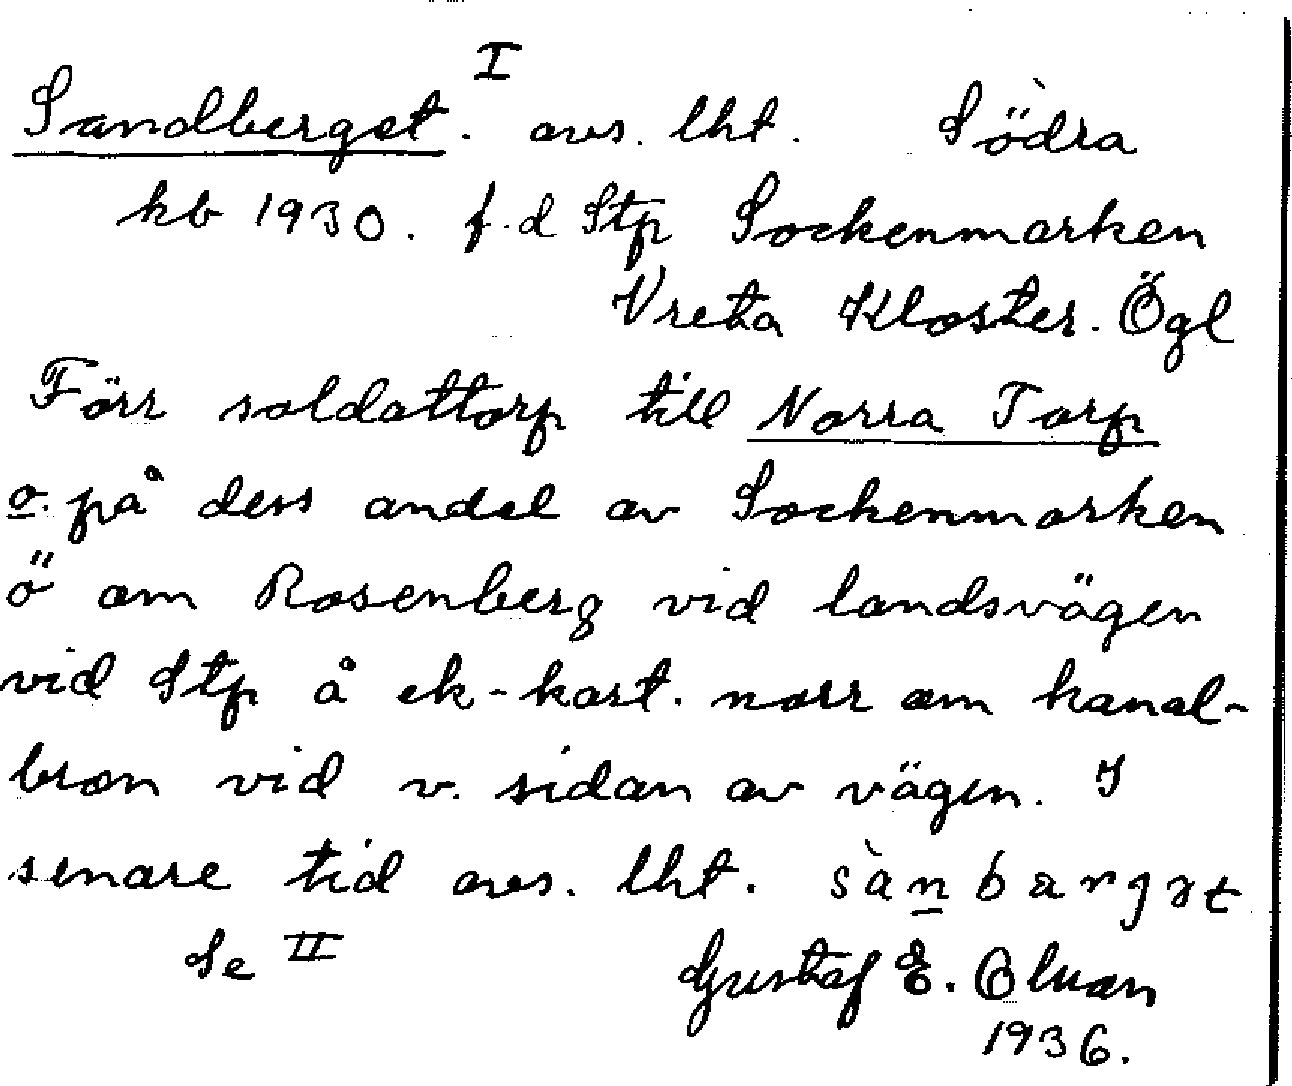 I
Sandberget. avs. lht. Södra
kb 1930. f.d Stp Sockenmarken
Vreta Kloster. Ögl
Förr soldattorp till Norra Torp
o. på dess andel av Sockenmarken
ö om Rosenberg vid landsvägen
vid Stp å ek-kart. norr om kanal-
bron vid v. sidan av vägen. I
senare tid avs. lht. sànbærgət
Se II Gustaf E.
1936.